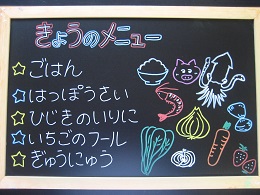 きょうのメニュー
ごはん
はっぽうさい
ひじきのいりに
いちごのフール
ぎゅうにゅう